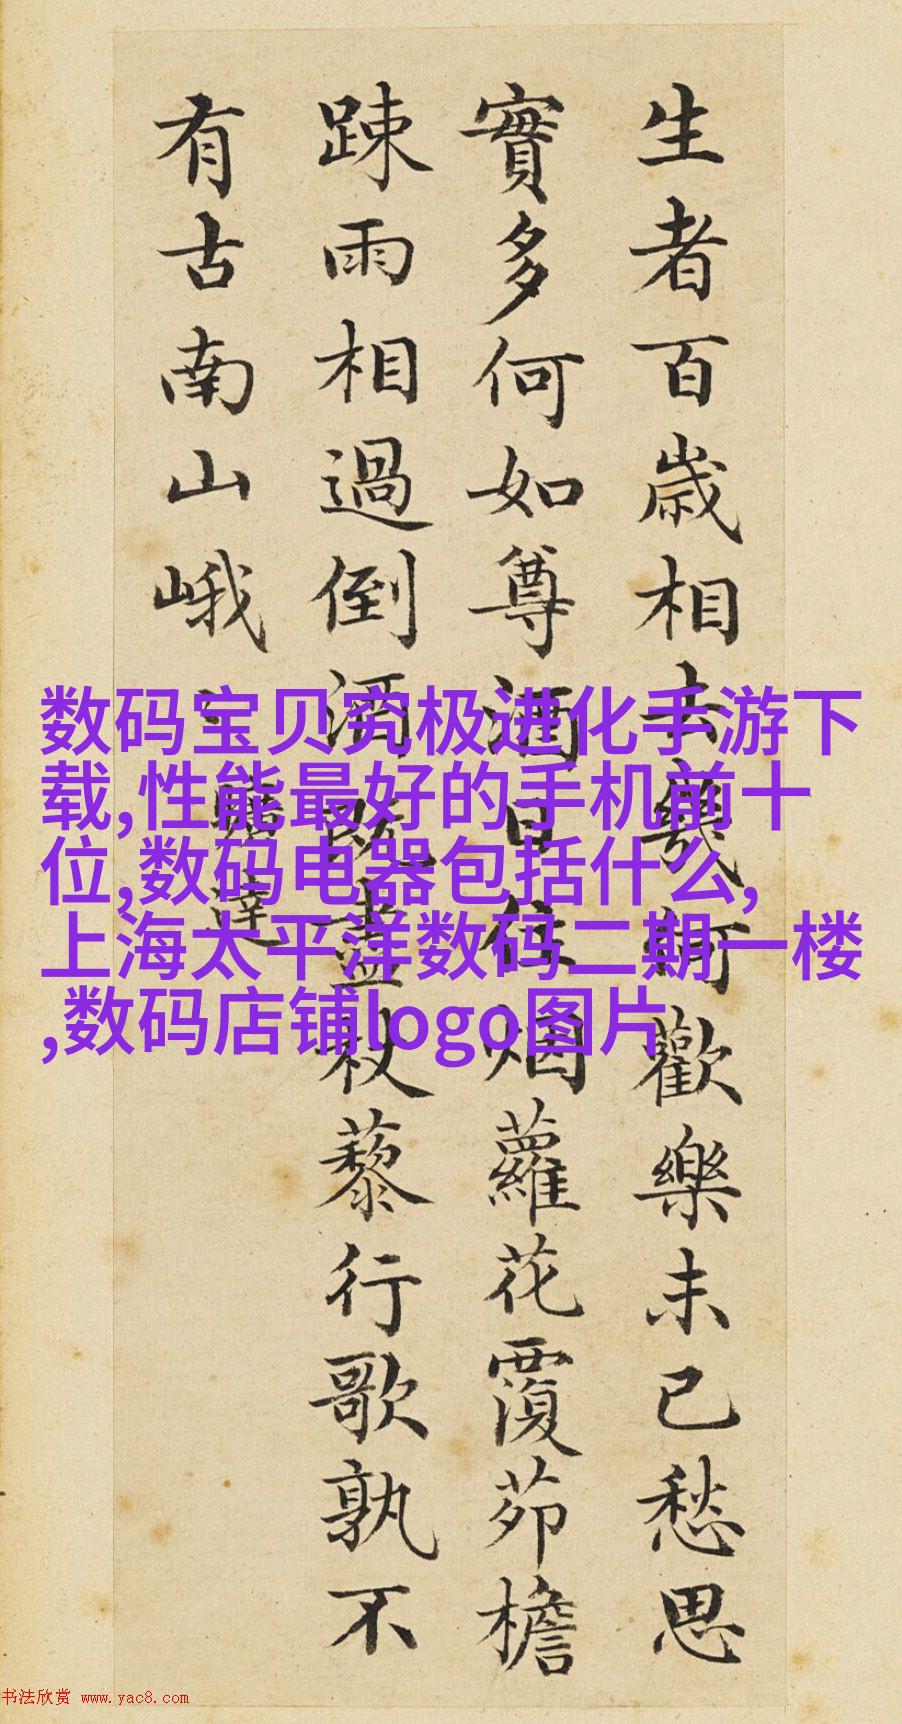 生者百歳相去幾何歡樂未已愁思
實多何如尊酒日往烟蘿花覆茆檐
踈雨相過倒酒既盡杖藜行歌孰不
有古南山峨〻
達
数码宝贝究极进化手游下
载,性能最好的手机前十
位,数码电器包括什么,
上海太平洋数码二期一楼
,数码店铺logo图片
书法欣赏 www.yac8.com